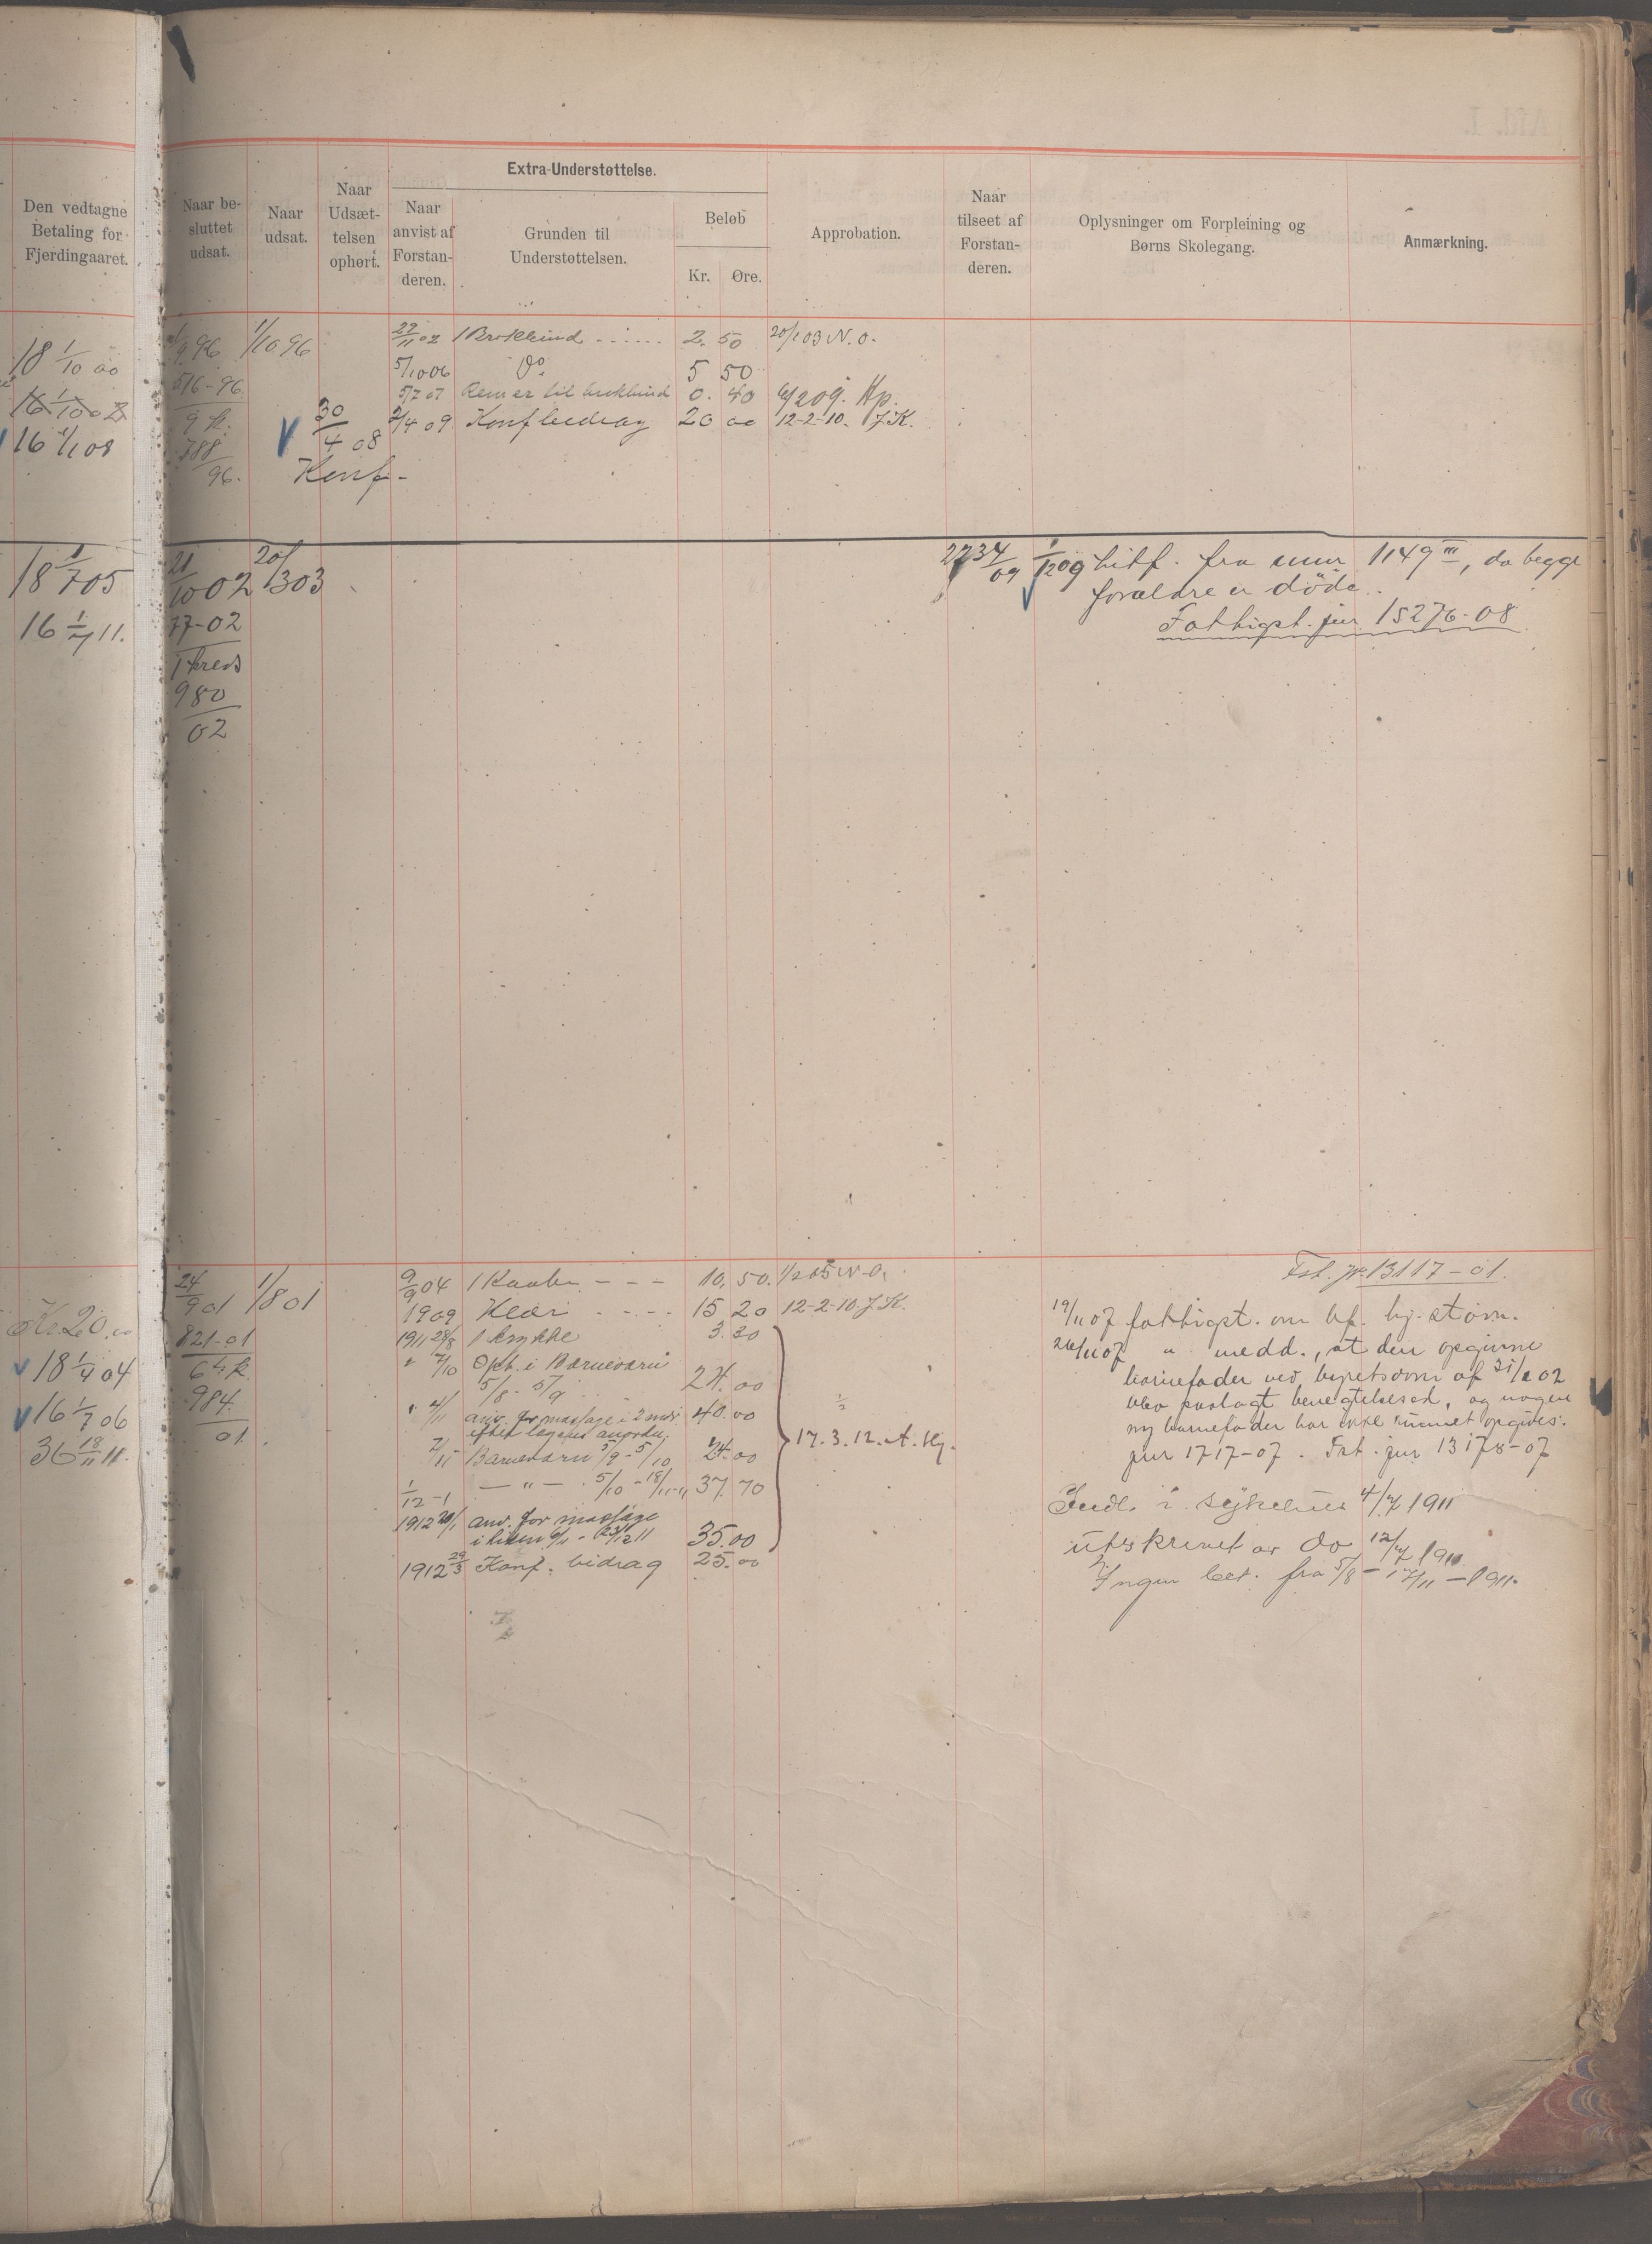 Den vedtagne
Betaling for
Fjerdingaaret.
Naar be-
sluttet
udsat.
Naar
udsat.
Naar
Udsæt-
telsen
ophørt.
Extra-Understøttelse.
Naar
anvist af
Forstan-
deren.
Grunden til
Understøttelsen.
Beløb
Kr.
Øre.
Approbation.
Naar
tilseet af
Forstan-
deren.
Oplysninger om Forpleining og
Børns Skolegang.
Anmærkning.
18 1/10 00
16 1/10 02
16 1/1 08
1/9 96
516-96
9 k.
788
96.
1/10 96
30/4 08
Konf-
22/11 02 1 Brokbind 2. 50 20/1 03 N.O.
5/10 06 Do 5 50
5/7 07 Remer til brokbind 0. 40 4/2 09. Kp.
2/4 09 Konf bidrag 20 00 12-2-10. J.K.
18 1/7 05
16 1/4 11.
21/10 02 20/1 303
77-02
1 kreds
980
02
2734/09 1/12 09 hitf. fra mur 1149 III, da begge
forældre er døde.
Fattigst. jur 15276-08
Kr. 20.00
18 1/4 04
16 1/7 06
36 18/11 11.
24/9 01 1/8 01
821-01
6te k.
984
01.
9/9 04 1 Kaabe 10. 50. 1/2 05 N.O.
1909 Klær 15 20 12-2-10. J.K.
1911 28/8 1 krykke 3.30
" 7/10 Oph. i Barnevern
5/8 - 5/9 24.00
" 4/11 anv. for massage i 2 mdr. 40.00
efter lægens anordn.
7/11 Barnevern 5/9 - 5/10 24.00
1/12-1 — " — 5/10 - 18/11-11 37.70
17.3.12. A. Hj.
1912 20/1 anv. for massage
35.00
1912 29/3 Konf. bidrag 25.00
Fst. jr. 13117-01.
19/11 07 fattigst. om bf. hj. stavn.
26/11 07 " medd., at den opgivne
barnefader ved byretsdom af 21/2 02
blev paalagt benegtelsesed, og nogen
ny barnefader har ikke kunnet opgives.
jur 1717-07. Fst. jur 13178-07
Indl. i sykehus 4/7 1911
utskrevet av do 12/7 1911
Ingen bet. fra 5/8 - 17/11 - 1911.